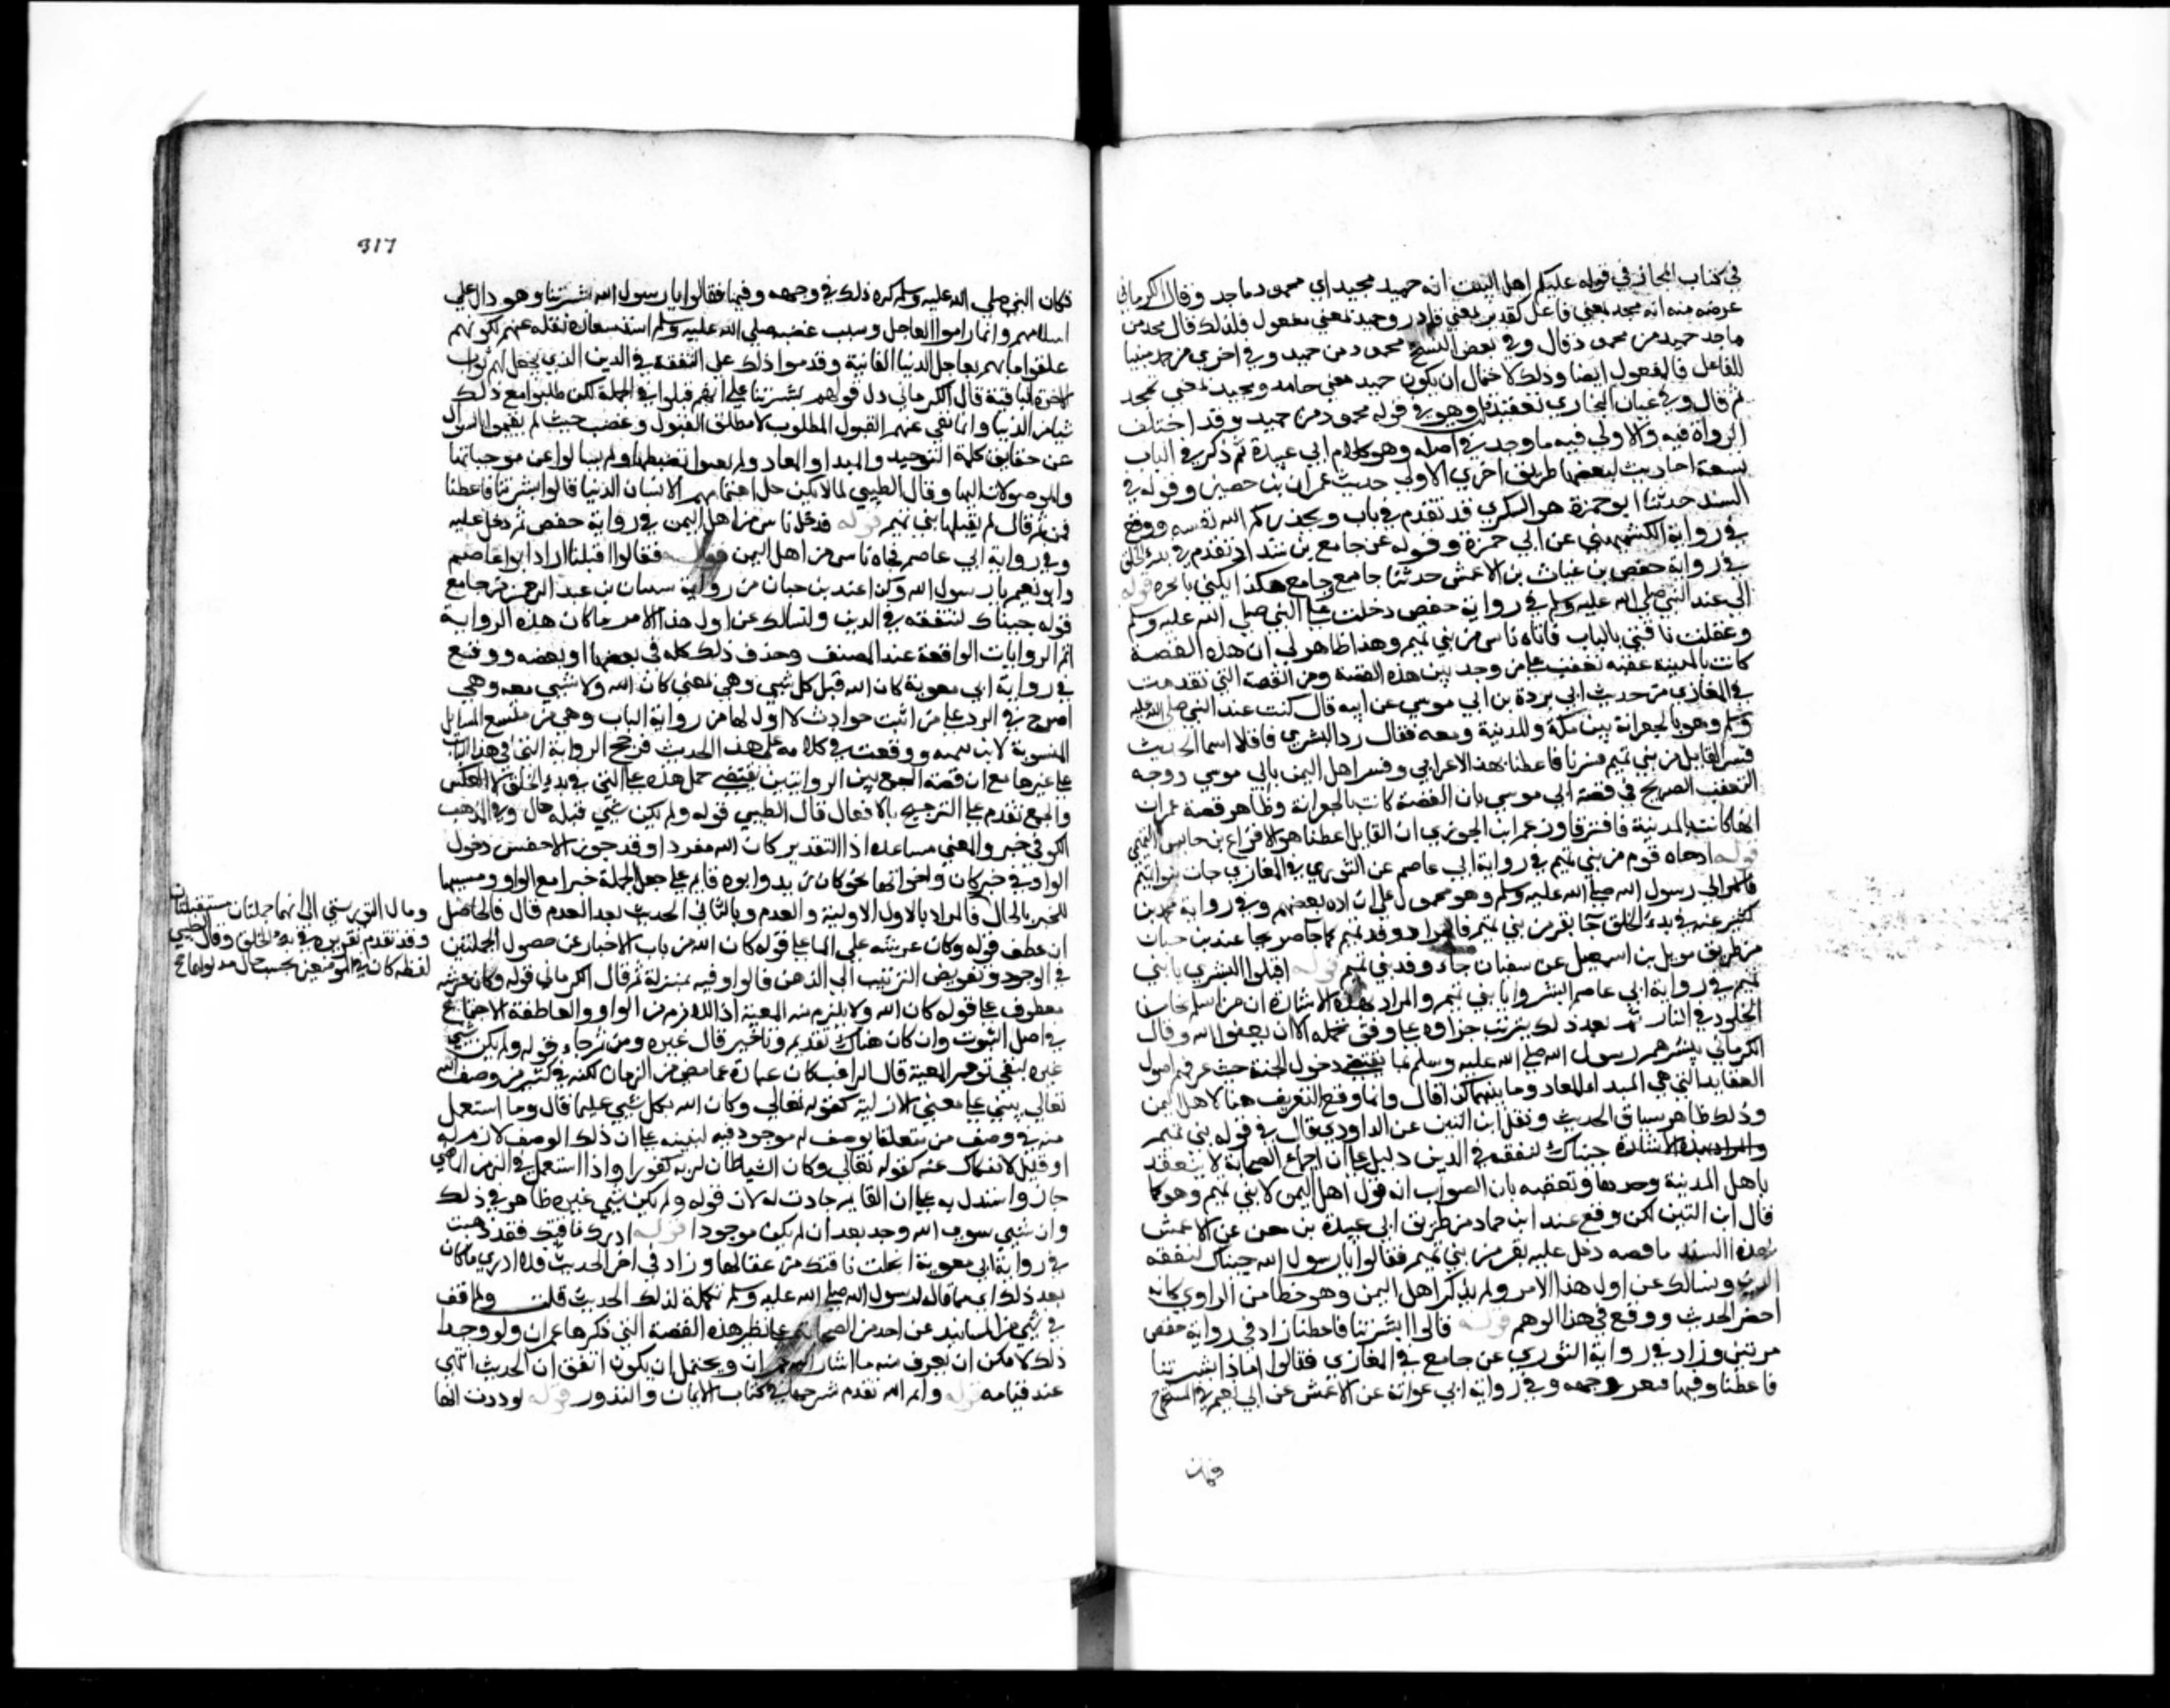 في كتاب المجاز في قوله عليكم اهل البيت انه حميد مجيد اي محمود ماجد وقال الكرماني
غرضه منه انه مجيد بمعني فاعل كقدير بمعني قادر وحميد بمعني مفعول فلذلك قال مجيد من
ماجد حميد من محمود قال وفي بعض النسخ محمود من حميد وفي اخري من حمد مبنيا
للفاعل فالمفعول ايضا وذلك لاحتمال ان يكون حميد بمعني حامد ومجيد بمعني ممجد
ثم قال وفي عبارة البخاري تعقيد قلت وهو في قوله محمود من حميد وقد اختلف
الرواة فيه والاولي فيه ما وجد في اصله وهو كلام ابي عبيدة ثم ذكر في الباب
تسعة احاديث لبعضها طريق اخري الاول حديث عمران بن حصين وقوله في
السند حدثنا ابو حمزة هو السكري قد تقدم في باب ويحذركم الله نفسه ووقع
في رواية الكشميهني عن ابي حمزة وقوله عن جامع بن شداد تقدم في بدء الخلق
في رواية حفص بن غياث بن الاعمش حدثنا جامع وجامع هكذا يكني ابا صخرة قوله
اني عند النبي صلي الله عليه وسلم في رواية حفص دخلت علي النبي صلي الله عليه وسلم
وعقلت ناقتي بالباب فاتاه ناس من بني تميم وهذا ظاهر في ان هذه القصة
كانت بالمدينة ففيه تعقب علي من وحد بين هذه القصة وبين القصة التي تقدمت
في المغازي من حديث ابي بردة بن ابي موسي عن ابيه قال كنت عند النبي صلي الله عليه
وسلم وهو بالجعرانة بين مكة والمدينة ومعه فقال رد البشري فاقبلا انتما الحديث
ففسر القايل من بني تميم بشرتنا فاعطنا بهذا الاعرابي وفسر اهل اليمن بابي موسي ووجه
التعقب الصريح في قصة ابي موسي بان القصة كانت بالجعرانة وظاهر قصة عمران
انها كانت بالمدينة فافترقا وزعم ابن الجوزي ان القايل اعطنا هو الاقرع بن حابس التميمي
قوله اذ جاه قوم من بني تميم في رواية ابي عاصم عن الثوري في المغازي جات بنو تميم
الي رسول الله صلي الله عليه وسلم وهو محمول علي ارادة بعضهم وفي رواية محمد بن
كثير عنه في بدء الخلق جا نفر من بني تميم فالمراد وفد تميم كما جا صريحا عند بن حبان
من طريق مومل بن اسمعيل عن سفيان جاء وفد بني تميم قوله اقبلوا البشري يا بني
تميم في رواية ابي عاصم ابشروا يا بني تميم والمراد بهذه الاشارة ان من اسلم نجا من
الخلود في النار ثم بعد ذلك يترتب جزاوه علي وفق عمله الا ان يعفو الله وقال
الكرماني بشرهم رسول الله صلي الله عليه وسلم بما يقتضي دخول الجنة حيث عرفهم اصول
العقايد التي هي المبدا والمعاد وما بينهما كذا قال وانما وقع التعريف هنا لاهل اليمن
وذلك ظاهر سياق الحديث ونقل ابن التين عن الداودي قال في قوله بني تميم
جيناك لنتفقه في الدين دليل علي ان اجماع الصحابة لا ينعقد
باهل المدينة وحدها وتعقبه بان الصواب انه قول اهل اليمن لا بني تميم وهو كما
قال ابن التين لكن وقع عند ابن حبان من طريق ابي عبيدة بن معن عن الاعمش
بهذا السند ما نصه دخل عليه نفر من بني تميم فقالوا يا رسول الله جيناك لنتفقه
الدين ونسالك عن اول هذا الامر ولم يذكر اهل اليمن وهو خطا من الراوي كانه
اختصر الحديث ووقع في هذا الوهم قوله قالوا بشرتنا فاعطنا زاد في رواية حفص
مرتين وزاد في رواية الثوري عن جامع في المغازي فقالوا اما اذا بشرتنا
فاعطنا وفيها فتغير وجهه وفي رواية ابي عوانة عن الاعمش عن ابي نعيم في المستخرج
فكان
317
فكان النبي صلي الله عليه وسلم كره ذلك في وجهه وفيها فقالوا يا رسول الله بشرتنا وهو دال علي
اسلامهم وانما راموا العاجل وسبب غضبه صلي الله عليه وسلم استشعاره بقلة علمهم لكونهم
علقوا امالهم بعاجل الدنيا الفانية وقدموا ذلك علي التفقه في الدين الذي يحصل لهم ثواب
الاخرة الباقية قال الكرماني دل قولهم بشرتنا علي انهم قبلوا في الجملة لكن طلبوا مع ذلك
شيا من الدنيا وانما نفي عنهم القبول المطلوب لا مطلق القبول وغضب حيث لم يهتموا بالسوال
عن حقايق كلمة التوحيد والمبدا والمعاد ولم يعتنوا بضبطها ولم يسالوا عن موجباتها
والموصولات اليها وقال الطيبي لما لم يكن جل اهتمامهم الا بشان الدنيا قالوا بشرتنا فاعطنا
فمن ثم قال لم يقبلها بني تميم قوله فدخل ناس من اهل اليمن في رواية حفص ثم دخل عليه
وفي رواية ابي عاصم فجاه ناس من اهل اليمن قوله فقالوا قبلنا زاد ابو عاصم
وابو نعيم يا رسول الله وكذا عند بن حبان من رواية شيبان بن عبد الرحمن عن جامع
قوله جيناك لنتفقه في الدين ولنسالك عن اول هذا الامر ما كان هذه الرواية
اتم الروايات الواقعة عند المصنف وحذف ذلك كله في بعضها او بعضه ووقع
في رواية ابي معوية كان الله قبل كل شيي وهي بمعني كان الله ولا شيي معه وهي
اصرح في الرد علي من اثبت حوادث لا اول لها من رواية الباب وهي من مستشنع المسايل
المنسوبة لابن تيمية ووقعت في كلام له علي هذا الحديث فرجح الرواية التي في هذا الباب
علي غيرها مع ان قصة الجمع بين الروايتين يقتضي حمل هذه علي التي في بدء الخلق لا العكس
والجمع تقدم علي الترجيح بالاتفاق قال الطيبي قوله ولم يكن شيي قبله حال وفي المذهب
الكوفي خبر والمعني يساعده اذ التقدير كان الله مفردا وقد جوز الاخفش دخول
الواو في خبر كان واخواتها نحو كان زيد وابوه قايم علي جعل الجملة خبرا مع الواو وشبهها
للخبر بالحال فالمراد بالاول الاولية والعدم وبالثاني الحدث بعد العدم قال فالحاصل
ان عطف قوله وكان عرشه علي الما علي قوله كان الله من باب الاخبار عن حصول الجملتين
في الوجود وتفويض الترتيب الي الذهن قالوا وفيه بمنزلة ثم قال الكرماني قوله وكان عرشه
معطوف علي قوله كان الله ولا يلزم منه المعية اذ اللازم من الواو والعاطفة الاجتماع
في اصل الثبوت وان كان هناك تقديم وتاخير قال غيره ومن ثم جاء قوله ولم يكن شيي
غيره لنفي توهم المعية قال الراغب كان عبارة عما مضي من الزمان لكنه في كثير من وصف الله
تعالي ينبي علي معني الازلية كقوله تعالي وكان الله بكل شيي عليما قال وما استعمل
منه في وصف من متعلقا بوصف له موجود فيه لينبه علي ان ذلك الوصف لازم له
او قليل الانفكاك عنه كقوله تعالي وكان الشيطان لربه كفورا واذا استعمل في الزمن الماضي
جاز واستدل به علي ان العالم حادث له لان قوله ولم يكن شيي غيره ظاهر في ذلك
وان شيي سوي الله وجد بعد ان لم يكن موجودا قوله ادرك ناقتك فقد ذهبت
في رواية ابي معوية انحلت ناقتك من عقالها وزاد في اخر الحديث فلا ادري ما كان
بعد ذلك اي مما قاله رسول الله صلي الله عليه وسلم تكملة لذلك الحديث قلت ولم اقف
في شيي من المسانيد عن احد من الصحابة علي نظير هذه القصة التي ذكرها عمران ولو وجد
ذلك لامكن ان يعرف منه ما اشار اليه عمران ويحتمل ان يكون اتفق ان الحديث انتهي
عند قيامه قوله وايم الله تقدم شرحها في كتاب الايمان والنذور قوله لوددت انها
ومال التوربشتي الي انهما جملتان مستقلتان
وقد تقدم تقريره في بدء الخلق وقال الطيبي
لفظة كان في الموضعين بحسب حال مدخولها